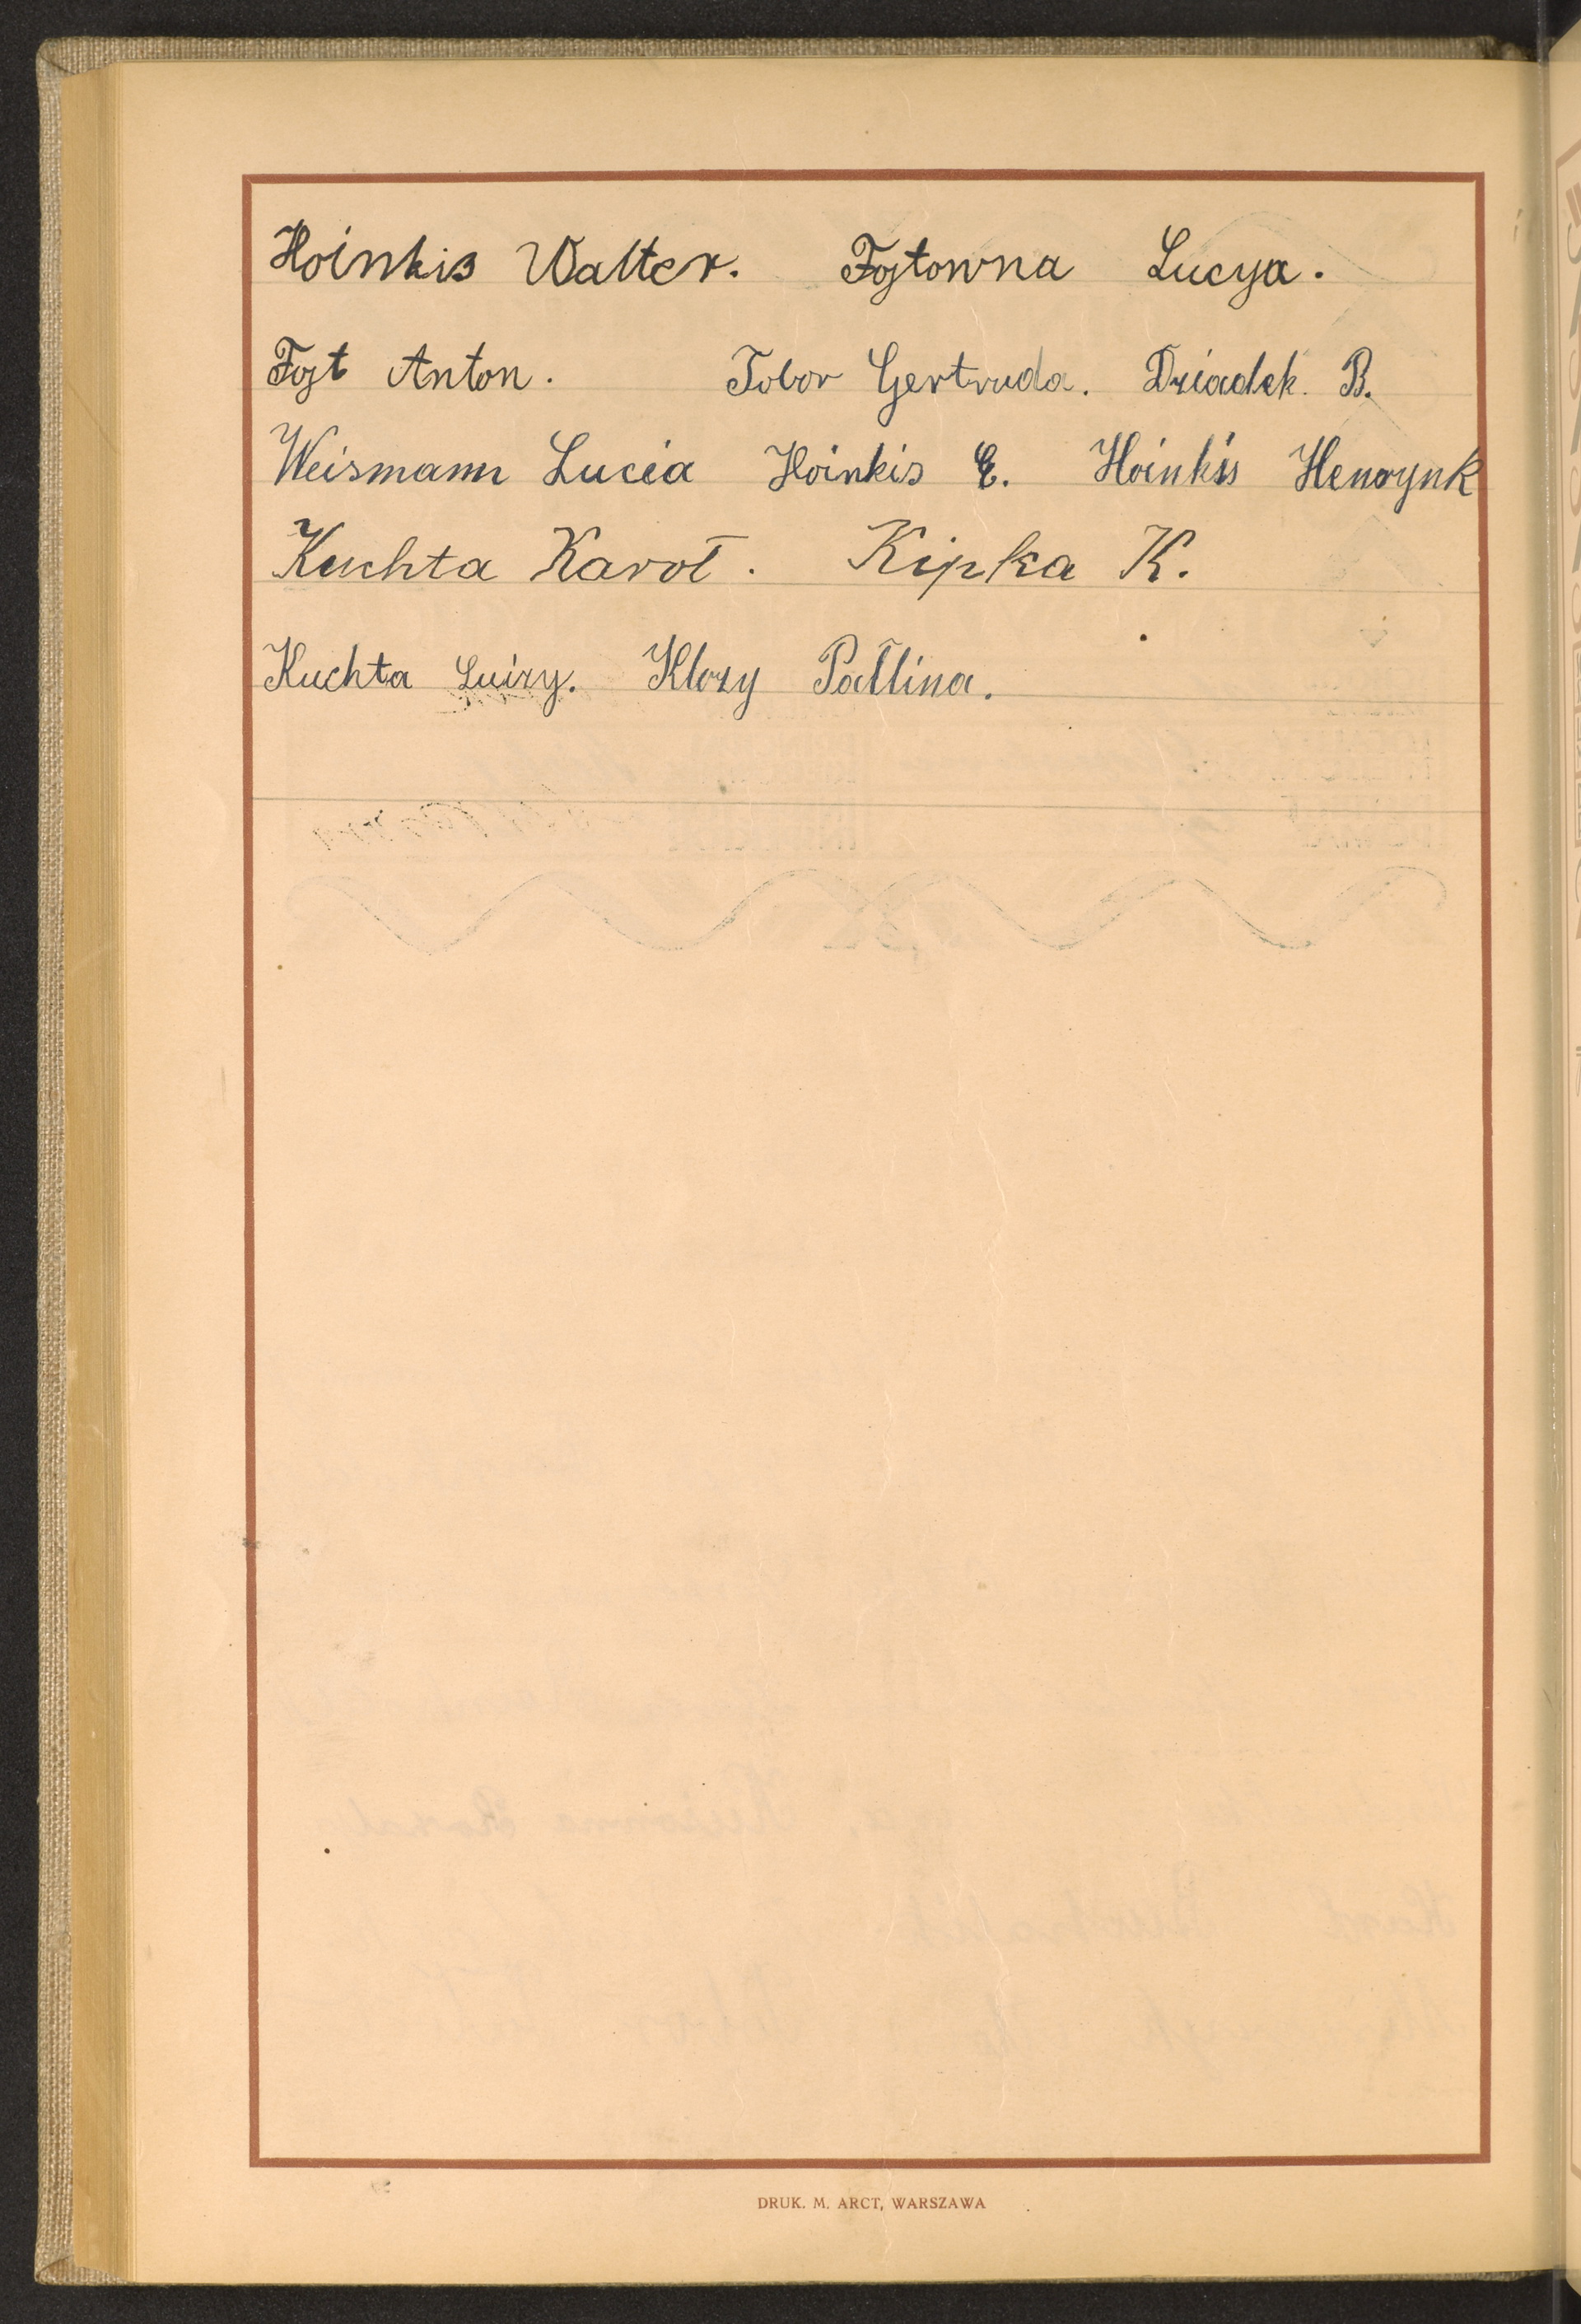 Hoinkis Walter. Fojtowna Lucya.
Fojt Anton. Tobor Gertruda. Dziadek. B.
Weismann Lucia Hoinkis E. Hoinkis Henrynk
Kuchta Karol. Kipka K.
Kuchta Luizy. Klozy Pallina.
DRUK. M. ARCT, WARSZAWA